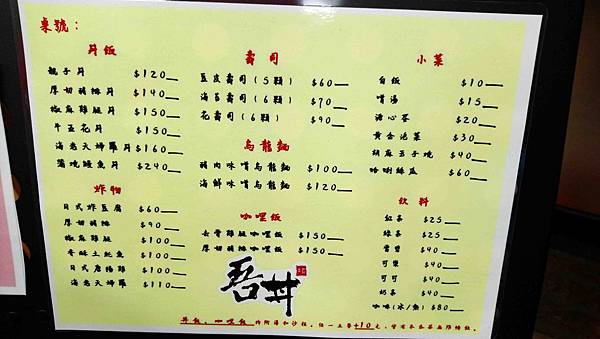 桌號：
丼飯
親子丼 $120
厚切豬排丼 $140
椒麻雞腿丼 $150
牛五花丼 $150
海老天婦羅丼 $160
蒲燒鰻魚丼 $240
炸物
日式炸豆腐 $60
厚切豬排 $90
椒麻雞腿 $100
香酥土魠魚 $100
日式唐揚雞 $100
海老天婦羅 $110
壽司
豆皮壽司(5顆) $60
海苔壽司(6顆) $70
花壽司(6顆) $90
烏龍麵
豬肉味噌烏龍麵 $100
海鮮味噌烏龍麵 $120
咖哩飯
去骨雞腿咖哩飯 $150
厚切豬排咖哩飯 $150
吾丼
小菜
白飯 $10
味噌湯 $15
溏心蛋 $20
黃金泡菜 $30
胡麻玉子燒 $40
哈唎絲瓜 $60
飲料
紅茶 $25
綠茶 $25
雪碧 $40
可樂 $40
可可 $40
奶茶 $40
咖啡(冰/熱) $80
丼飯、咖哩飯 附附湯和沙拉，
+10元